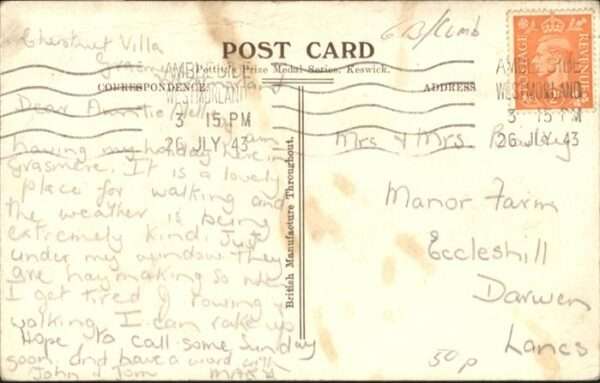 Chestnut Villa
GB/Cumb
POST CARD
Pettitt's Prize Medal Series, Keswick.
CORRESPONDENCE
ADDRESS
AMBLESIDE
WESTMORLAND
3 15 PM
26 JLY 43
AMBLESIDE
WESTMORLAND
3 15 PM
26 JLY 43
POSTAGE
REVENUE
Dear Auntie
having my holiday here in
Grasmere. It is a lovely
place for walking and
the weather is being
extremely kind. Just
under my window they
are haymaking so when
I get tired of rowing &
walking I can rake up
Hope to call some Sunday
soon, and have a word with
John & Tom
British Manufacture Throughout.
Mrs & Mrs
Manor Farm
Eccleshill
Darwen
Lancs
50p